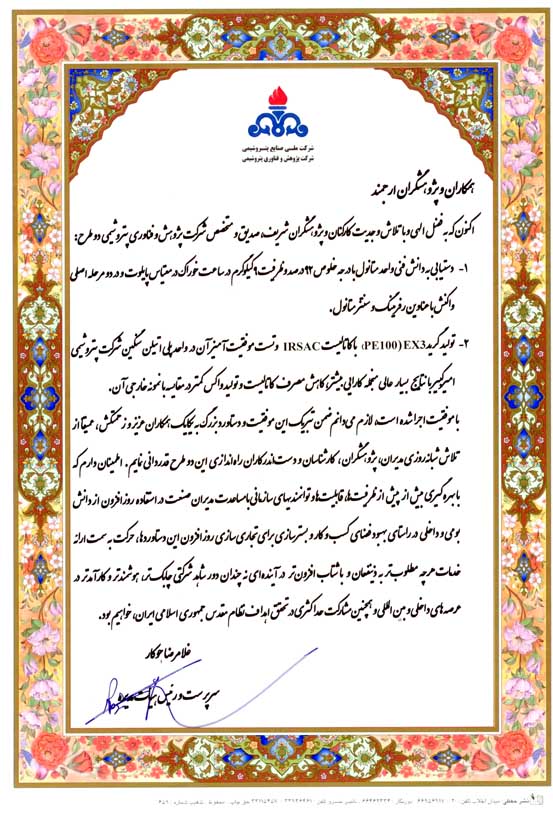 شرکت ملی صنایع پتروشیمی
شرکت پژوهش و فناوری پتروشیمی
همکاران و پژوهشگران ارجمند
اکنون که به فضل الهی و با تلاش و جدیت کارکنان و پژوهشگران شریف، صدیق و متخصص شرکت پژوهش و فناوری پتروشیمی دو طرح:
۱- دستیابی به دانش فنی واحد متانول با درجه خلوص ۹۲ درصد و ظرفیت ۹ کیلوگرم در ساعت خوراک در مقیاس پایلوت و در دو مرحله اصلی
واکنش با عناوین رفرمینگ و سنتز متانول.
۲- تولید گرید EX3 (PE100) با کاتالیست IRSAC وتست موفقیت آمیز آن در واحد پلی اتیلن سنگین شرکت پتروشیمی
امیرکبیر با نتایج بسیار عالی منجمله کارایی بیشتر، کاهش مصرف کاتالیست و تولید واکس کمتر در مقایسه با نمونه خارجی آن.
با موفقیت اجرا شده است، لازم می دانم ضمن تبریک این موفقیت و دستاورد بزرگ به یکایک همکاران عزیز و زحمتکش، عمیقاً از
تلاش شبانه روزی مدیران، پژوهشگران، کارشناسان و دست اندرکاران راه اندازی این دو طرح قدردانی نمایم. اطمینان دارم که
با بهره گیری بیش از پیش از ظرفیت ها، قابلیت ها و توانمندیهای سازمانی با مساعدت مدیران صنعت در استفاده روز افزون از دانش
بومی و داخلی در راستای بهبود فضای کسب و کار و بسترسازی برای تجاری سازی روز افزون این دستاوردها، حرکت به سمت ارائه
خدمات هرچه مطلوب تر به ذینفعان و با شتاب افزون تر در آینده ای نه چندان دور شاهد شرکتی چابک تر، هوشمندتر و کارآمدتر در
عرصه های داخلی و بین المللی و همچنین مشارکت حداکثری در تحقق اهداف نظام مقدس جمهوری اسلامی ایران، خواهیم بود.
غلامرضا جوکار
سرپرست و رئیس هیات مدیره